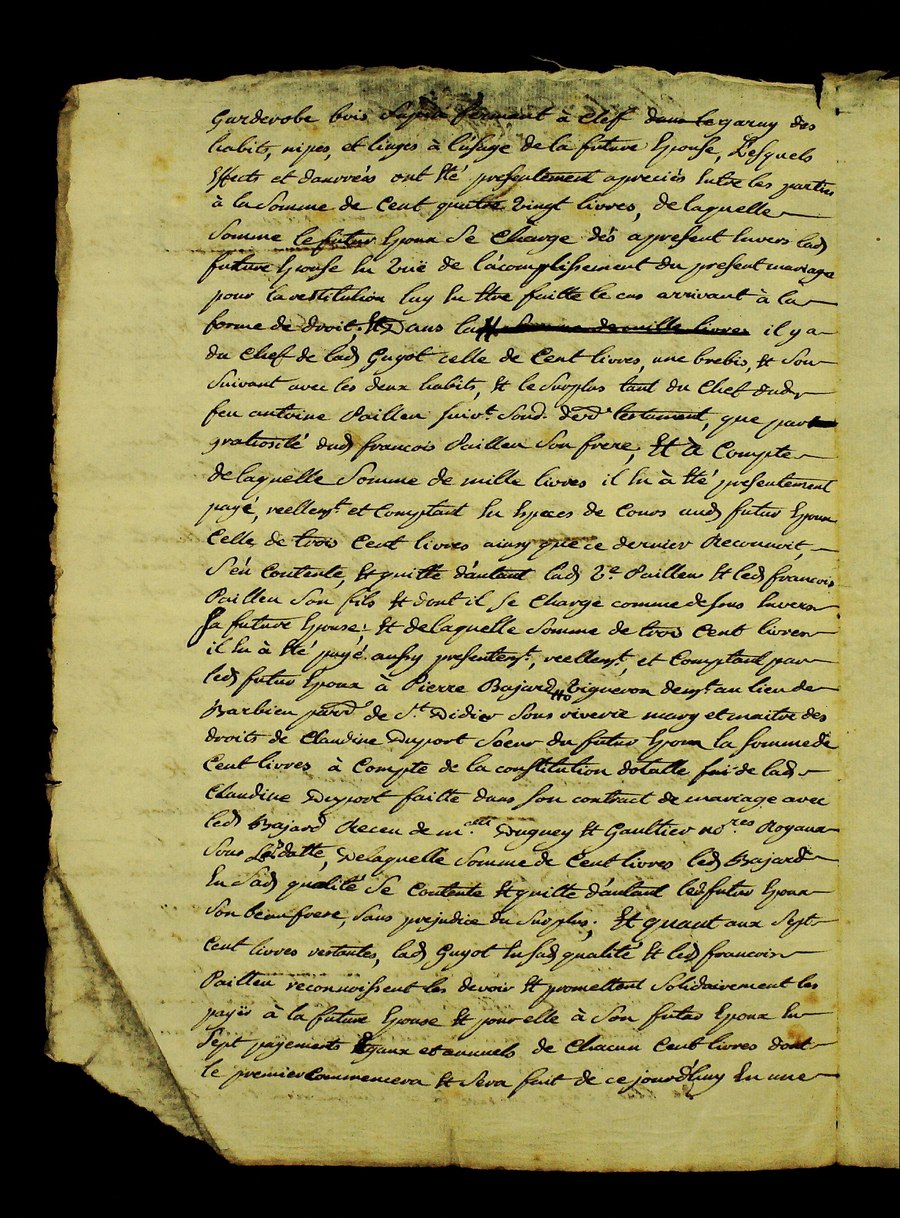 Garderobe bois Sapin fermant à Clef des
habits, nipes, et linges à l'usage de la future Epouse, Lesquels
Effects et danrrées ont Eté presentement apreciés Entre les parties
à la Somme de Cent quatre vingt livres, de laquelle
Somme le futur Epoux Se Charge dés apresent Envers lad
future Epouse En vuë de l'acomplissement du present mariage
pour la restitution luy En Etre faitte le cas arrivant à la
forme de droit; Et Dans la il y a
du Chef de lad Guyot celle de Cent livres, une brebis, & Son
Suivant avec les deux habits, & le Surplus tant du Chef dud
feu antoine Pailleu Suivt. Sond. testament, que par
gratiosité dud francois Pailleu Son frere, Et à Compte
de laquelle Somme de mille livres il En à Eté presentement
payé, reellemt. et Comptant En Especes de Cours aud futur Epoux
Celle de trois Cent livres ainsy que ce dernier Reconnoit,
S'en Contente, & quitte d'autant lad Ve. Pailleu & led francois
Pailleu Son fils & dont il Se Charge comme dessus Envers
Sa future Epouse; Et de laquelle Somme de trois Cent livres
il En à Eté payé aussy presentemt., reellemt. et Comptant par
led futur Epoux à Pierre Bajard vigneron demt. au lieu de
Barbieu parr. de St. Didier Sous riverie mary et maitre des
droits de Claudine Duport Soeur du futur Epoux la Somme de
Cent livres à Compte de la constitution dotalle de lad
Claudine Duport faitte dans Son contract de mariage avec
led Bajard Receu de Duguey & Gaultier nores Royaux
Sous datte, Delaquelle Somme de Cent livres led Bajard
En Sad qualité Se Contente & quitte d'autant led futur Epoux
Son beaufrere, Sans prejudice du Surplus; Et quant aux Sept
Cent livres restantes, lad Guyot En Sad qualité & led francois
Pailleu reconnoissent les devoir & promettent Solidairement les
payer à la future Epouse & pour elle à Son futur Epoux En
Sept payements Egaux et annuels de Chacun Cent livres dont
le premier Commencera & Sera fait de ce jourd'huy En une